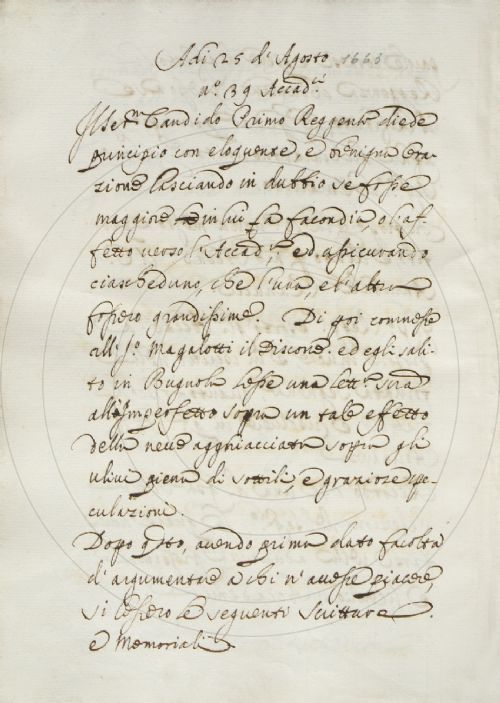 Adi 25 d'Agosto 1660
a.º 39 Accad.ci
Il Ser.m Candido Primo Reggente diede
principio con eloquente, e benigna Ora-
zione lasciando in dubbio se fosse
maggiore in lui la facondia, o l'af-
fetto verso l'Accad.ª ed assicurando
ciascheduno, che l'una, e l'altro
fossero grandissime. Di poi commesse
all' S.r Magalotti il Discorso. ed egli sali-
to in Bugnola lesse una lett.ª
all'Imperfetto sopra un tale effetto
della neve agghiacciata sopra gli
ulivi piena di sottili, e graziose spe-
culazioni.
Dopo q.sto, avendo prima dato facoltà
d'argumentare a chi n'avesse piacere,
si lessero le seguenti Scritture
e Memoriali.